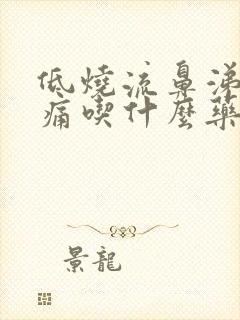 低燒流鼻涕
痛喫什麼藥
景龍